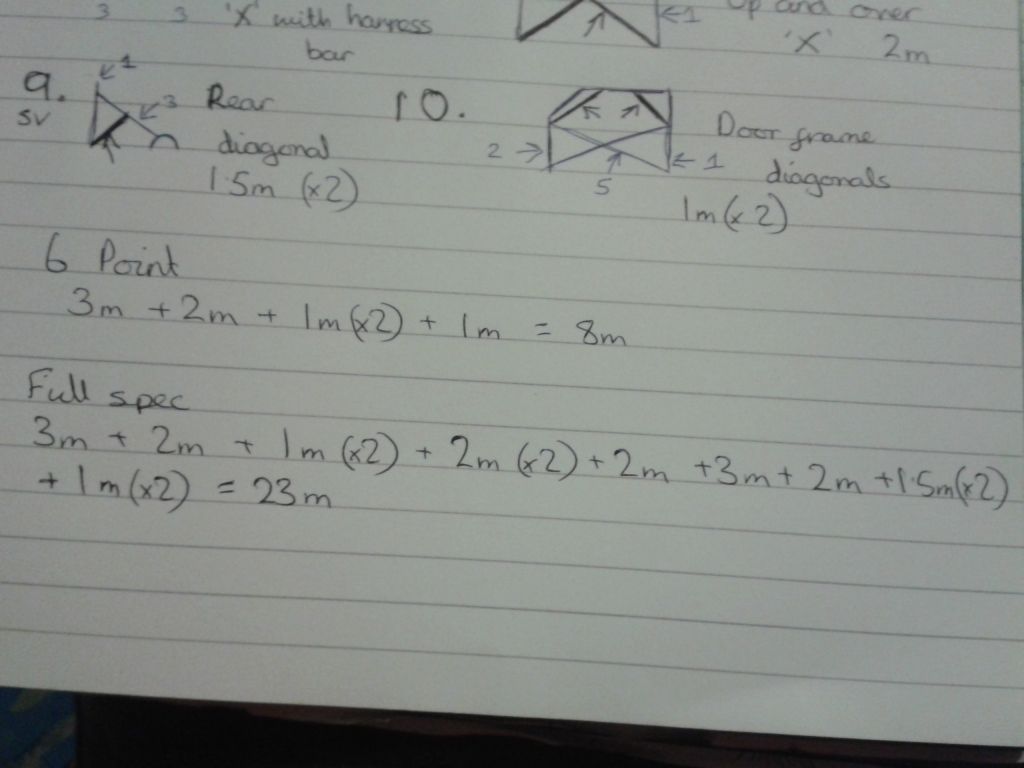 3 3 'X' with harness
bar
1 Up and over
'X' 2m
9.
SV
1
3
Rear
diagonal
1.5m (x2)
10.
2
5
1
Door frame
diagonals
1m(x2)
6 Point
3m + 2m + 1m(x2) + 1m = 8m
Full spec
3m + 2m + 1m(x2) + 2m (x2) + 2m + 3m + 2m + 1.5m(x2)
+ 1m(x2) = 23m